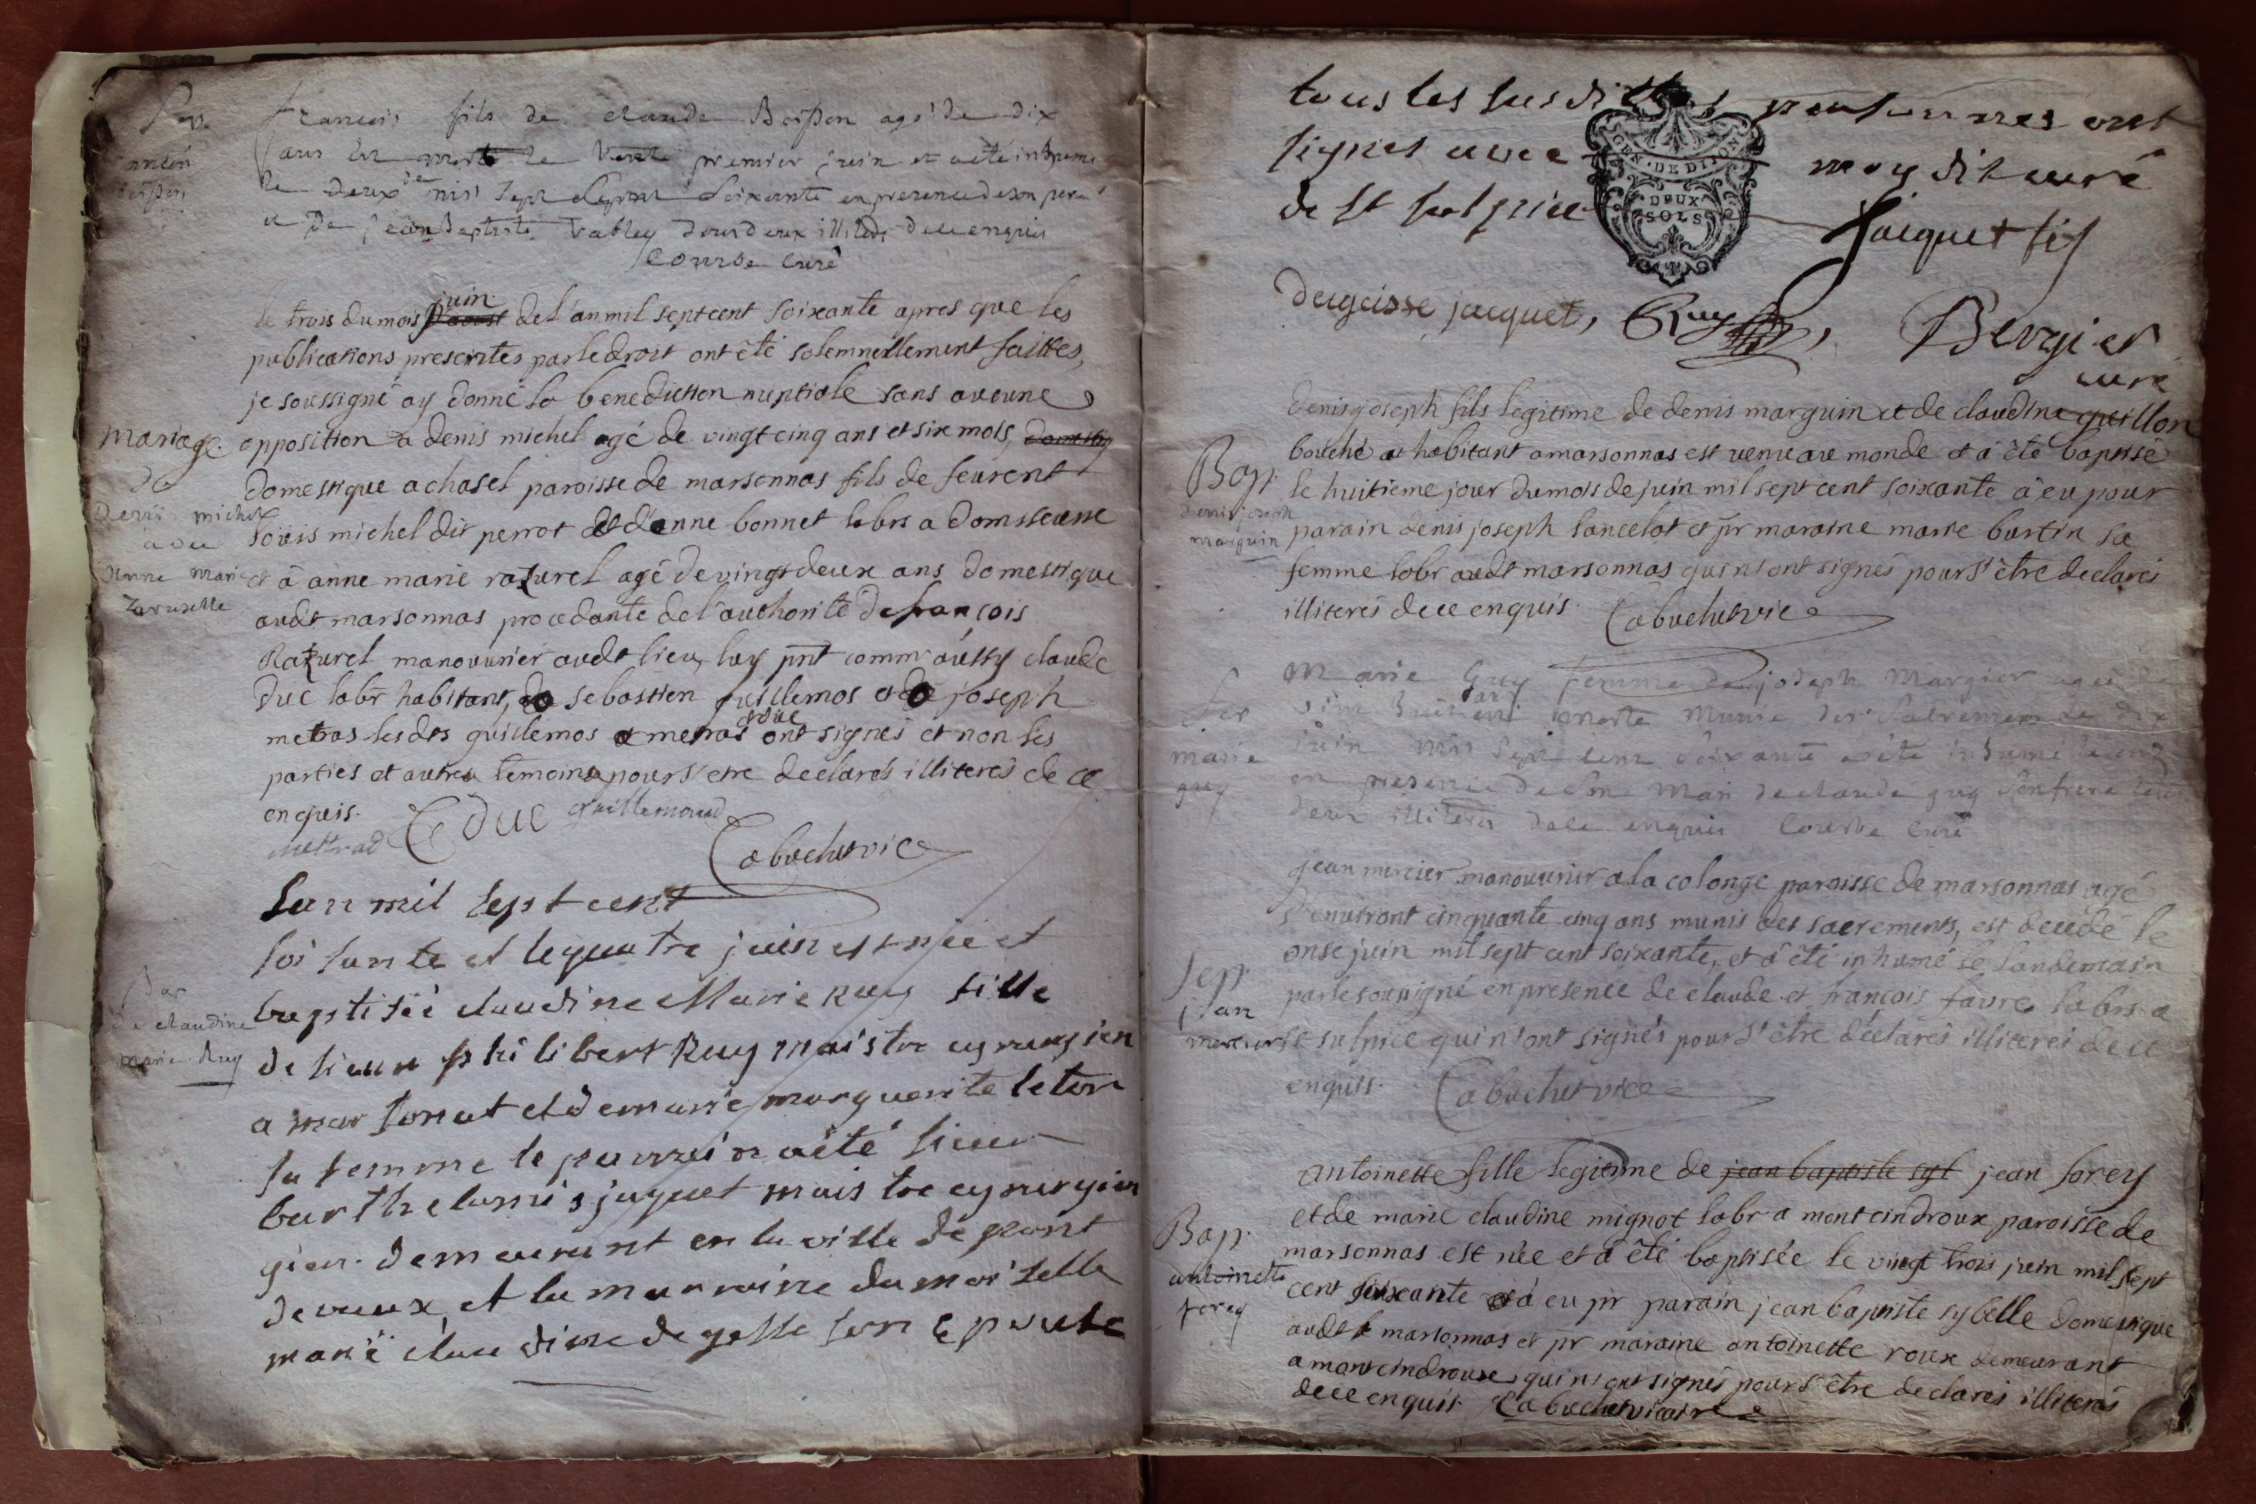 françois fils de claude agé de dix
ans est le premier juin et a été inhumé
le deux mil sept cent soixante en presence de son pere
et de jean baptiste tous deux de ce enquis
Course curé
le trois du mois juin de l'an mil sept cent soixante apres que les
publications prescrites par le droit ont êté solemnellement faittes,
je soussigné ay donné la benediction nuptiale sans aucune
Mariage opposition a denis michel agé de vingt cinq ans et six mois,
de domestique a chasel paroisse de marsonnas fils de feurent
denis michel louis michel dit perrot et d'anne bonnet labrs a domsseurre
avec
anne marie et â anne marie razurel agé de vingt deux ans domestique
audt marsonnas procedante de l'authorité de françois
Razurel manouvrier audt lieu, luy pnt comm'aussy claude
Duc labr habitant, sebastien guillemos et joseph
metras lesdts guillemos metras et duc ont signés et non les
parties et autres temoins pour s'etre declarés illiterés de ce
enquis.
mettrad C Duc guillemaud
Cabuchet vic
Lan mil sept cent
soisante et lequatre juin est née et
baptisée claudine Marie Ruy fille
de claudine
marie Ruy
de sieur philibert Ruy maistre cyrurgien
a marsonat et de marie marguerite leton
sa femme le parrain a été sieur
barthelemis jaquet maistre cyrurgien
gien. demeurant en la ville de pont
devaux, et la marraine damoiselle
marie claudine degesse son epouse
tous les susdittes personnes ont
GEN. DE DIJON
DEUX
SOLS
signes avec moy dit curé
de st sulpice
Jacquet fis
degaisse jacquet, Ruy, Bergier
curé
denis joseph fils legitime de denis marguin et de claudine guillon
Bap.
denis joseph
marguin
bouché et habitant a marsonnas est venu au monde et a êté baptisé
le huitieme jour du mois de juin mil sept cent soixante â eu pour
parain denis joseph lancelot et pr maraine marie burtin sa
femme labr audt marsonnas qui n'ont signés pour s'être declarés
illiterés de ce enquis. Cabuchet vic
Marie Guy femme de joseph Margier agée de
marie
guy
morte Munie des Sacremens le dix
juin mil sept cent soixante a été inhumé
en presence de son mari de claude guy son frere
deux illiterés de ce enquis Course curé
jean mercier manouvrier a la colonge paroisse de marsonnas agé
d'environt cinquante cinq ans munis des sacrements, est decedé le
onse juin mil sept cent soixante, et â êté inhumé le landemain
Sep.
jean
mercier
par le soussigné en presence de claude et françois favre labrs a
st sulpice qui n'ont signés pour s'être déclarés illiterés de ce
enquis. Cabuchet vice
Antoinette fille legitime de jean baptiste syl jean forey
et de marie claudine mignot labr a montcindroux paroisse de
Bap.
antoinette
forey
marsonnas est née et â êté baptisée le vingt trois juin mil sept
cent soixante et â eu pr parain jean baptiste sybelle domestique
audt marsonnas et pr maraine antoinette roux demeurant
a montcindroux, qui n'ont signés pour s'être declarés illiterés
de ce enquis. Cabuchet vicaire